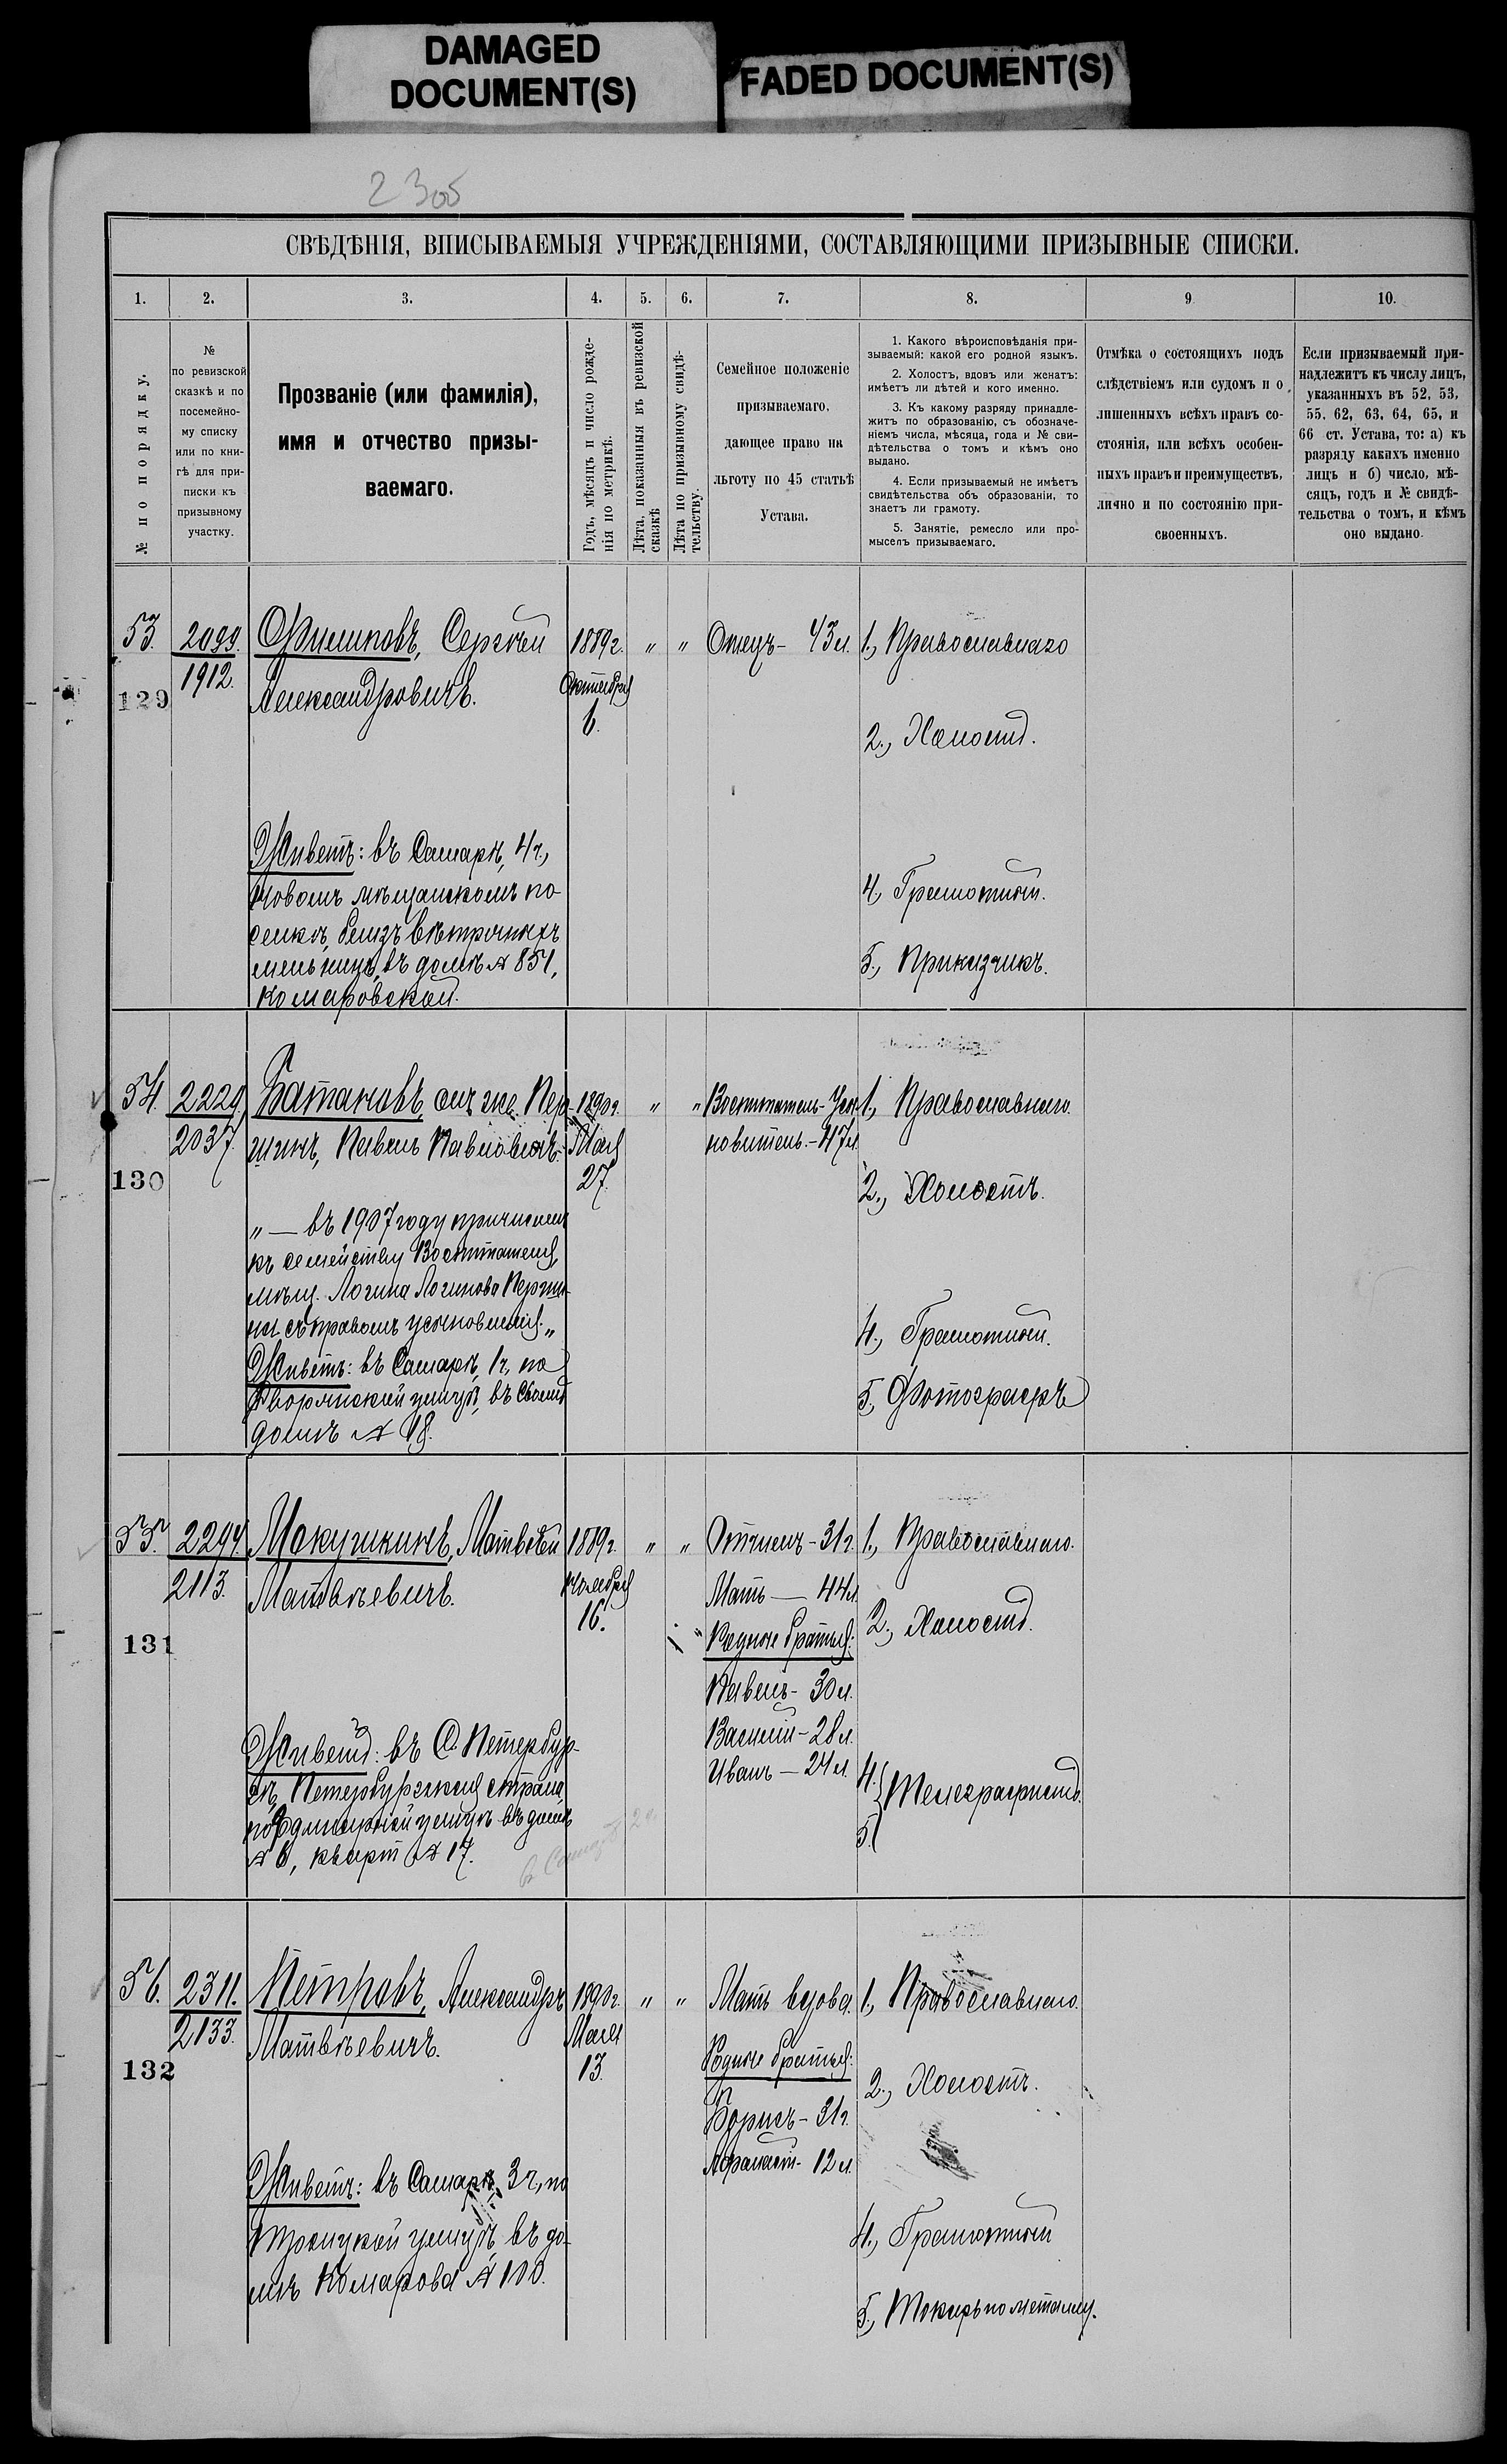 DAMAGED
DOCUMENT(S)
FADED DOCUMENT(S)
2305
СВѢДѢНІЯ, ВПИСЫВАЕМЫЯ УЧРЕЖДЕНІЯМИ, СОСТАВЛЯЮЩИМИ ПРИЗЫВНЫЕ СПИСКИ.
1.
2.
3.
4.
5.
6.
7.
8.
9
10.
№ по порядку.
№
по ревизской
сказкѣ и по
посемейно-
му списку
или по кни-
гѣ для при-
писки къ
призывному
участку.
Прозваніе (или фамилія),
имя и отчество призы-
ваемаго.
Годъ, мѣсяцъ и число рожде-
нія по метрикѣ.
Лѣта, показанныя въ ревизской
сказкѣ
Лѣта по призывному свидѣ-
тельству.
Семейное положеніе
призываемаго,
дающее право на
льготу по 45 статьѣ
Устава.
1. Какого вѣроисповѣданія при-
зываемый: какой его родной языкъ.
2. Холостъ, вдовъ или женатъ:
имѣетъ ли дѣтей и кого именно.
3. Къ какому разряду принадле-
житъ по образованію, съ обозначе-
ніемъ числа, мѣсяца, года и № сви-
дѣтельства о томъ и кѣмъ оно
выдано.
4. Если призываемый не имѣетъ
свидѣтельства объ образованіи, то
знаетъ ли грамоту.
5. Занятіе, ремесло или про-
мыселъ призываемаго.
Отмѣка о состоящихъ подъ
слѣдствіемъ или судомъ и о
лишенныхъ всѣхъ правъ со-
стоянія, или всѣхъ особен-
ныхъ правъ и преимуществъ,
лично и по состоянію при-
своенныхъ.
Если призываемый при-
надлежитъ къ числу лицъ,
указанныхъ въ 52, 53,
55, 62, 63, 64, 65, и
66 ст. Устава, то: а) къ
разряду какихъ именно
лицъ и б) число, мѣ-
сяцъ, годъ и № свидѣ-
тельства о томъ, и кѣмъ
оно выдано.
53.
129
2099.
1912.
Филиповъ, Сергѣй
Александровичъ.
Живетъ: въ Самарѣ, 4 ч.,
Новомъ мѣщанскомъ по-
селкѣ, близъ вѣтряныхъ
мельницъ, въ домѣ № 851,
Комаровской.
1889 г.
Октября
6.
"
"
Отецъ - 43 л.
1., Православнаго
2., Холостъ.
4., Грамотный.
5., Приказчикъ.
54.
130
2229.
2037.
Батановъ, онъ же Пер-
шинъ, Павелъ Павловичъ.
" — въ 1907 году причисленъ
къ семейству Воспитателя,
мѣщ. Логина Логинова Перши-
на съ правомъ усыновленія. "
Живетъ: въ Самарѣ, 1 ч., по
Дворянской улицѣ, въ своемъ
домѣ № 18.
1890 г.
Мая
27.
"
"
Воспитатель-Усы-
новитель. - 47 л.
1., Православнаго.
2., Холостъ.
4., Грамотный.
5., Фотографъ
55.
131
2294.
2113.
Мокушкинъ, Матвѣй
Матвѣевичъ.
Живетъ: въ С. Петербур-
гѣ, Петербургская сторона,
№ 6, кварт. № 17.
1889 г.
Ноября
16.
"
"
Отчимъ - 31 г.
Мать — 44 л.
Родные братья:
Павелъ - 30 л.
Василій - 28 л.
Иванъ — 24 л.
1., Православнаго.
2., Холостъ.
4.
5.
Телеграфистъ.
56.
132
2311.
2133.
Петровъ, Александръ
Матвѣевичъ.
Живетъ: въ Самарѣ, 3 ч., по
Троицкой улицѣ, въ до-
мѣ Комарова № 100.
1890 г.
Мая
13.
"
"
Мать вдова.
Родные братья:
Борисъ - 31 г.
Афанасій - 12 л.
1., Православнаго.
2., Холостъ.
4., Грамотный
5., Токарь по металлу.